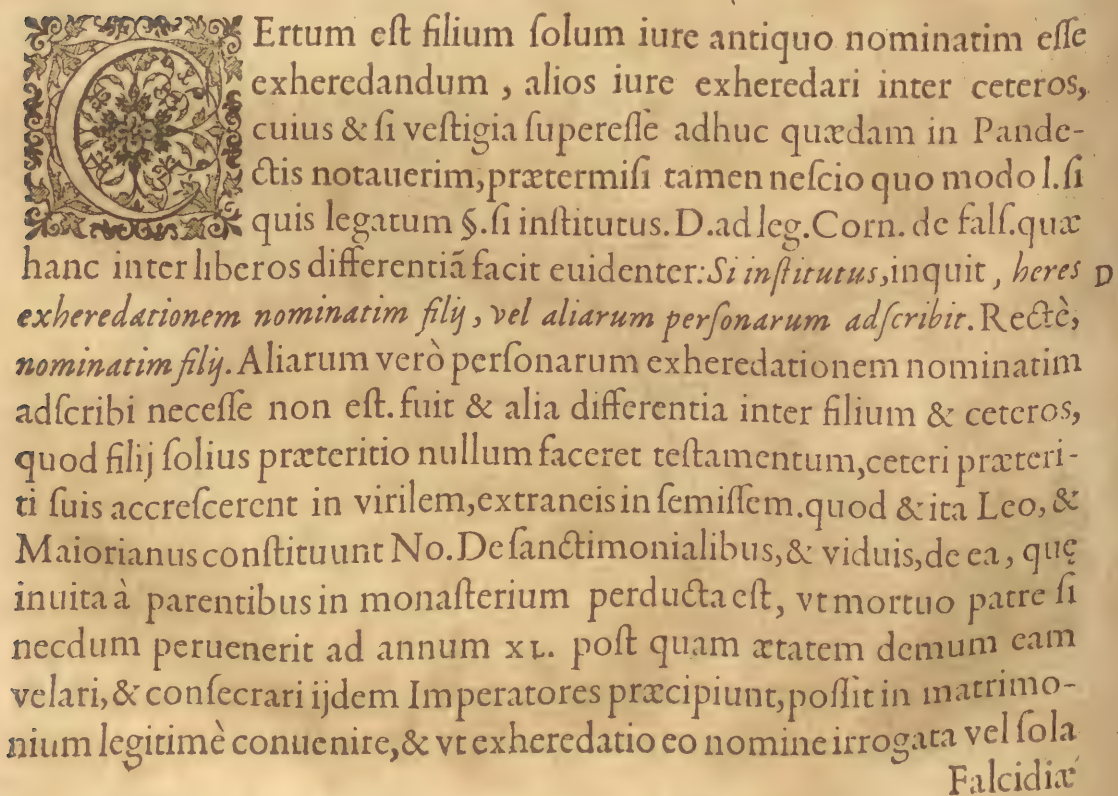 CErtum eſt filium ſolum iure antiquo nominatim eſſe
exheredandum , alios iure exheredari inter ceteros,
cuius & ſi veſtigia ſupereſſe adhuc quædam in Pande-
ctis notauerim,prætermiſi tamen neſcio quo modo l.ſi
quis legatum §.ſi inſtitutus. D.ad leg.Corn. de falſ.quæ
hanc inter liberos differentiã facit euidenter: Si inſtitutus,inquit , heres D
exheredationem nominatim filij , vel aliarum perſonarum adſcribit. Rectè,
nominatim filij. Aliarum verò perſonarum exheredationem nominatim
adſcribi neceſſe non eſt. fuit & alia differentia inter filium & ceteros,
quod filij ſolius præteritio nullum faceret teſtamentum,ceteri præteri-
ti ſuis accreſcerent in virilem,extraneis in ſemiſſem.quod & ita Leo, &
Maiorianus conſtituunt No. De ſanctimonialibus,& viduis,de ea , quę
inuita à parentibus in monaſterium perducta eſt, vt mortuo patre ſi
necdum peruenerit ad annum XL. poſt quam ætatem demum eam
velari,& conſecrari ijdem Imperatores præcipiunt,poſſit in matrimo-
nium legitimè conuenire,& vt exheredatio eo nomine irrogata vel ſola
Falcidiæ